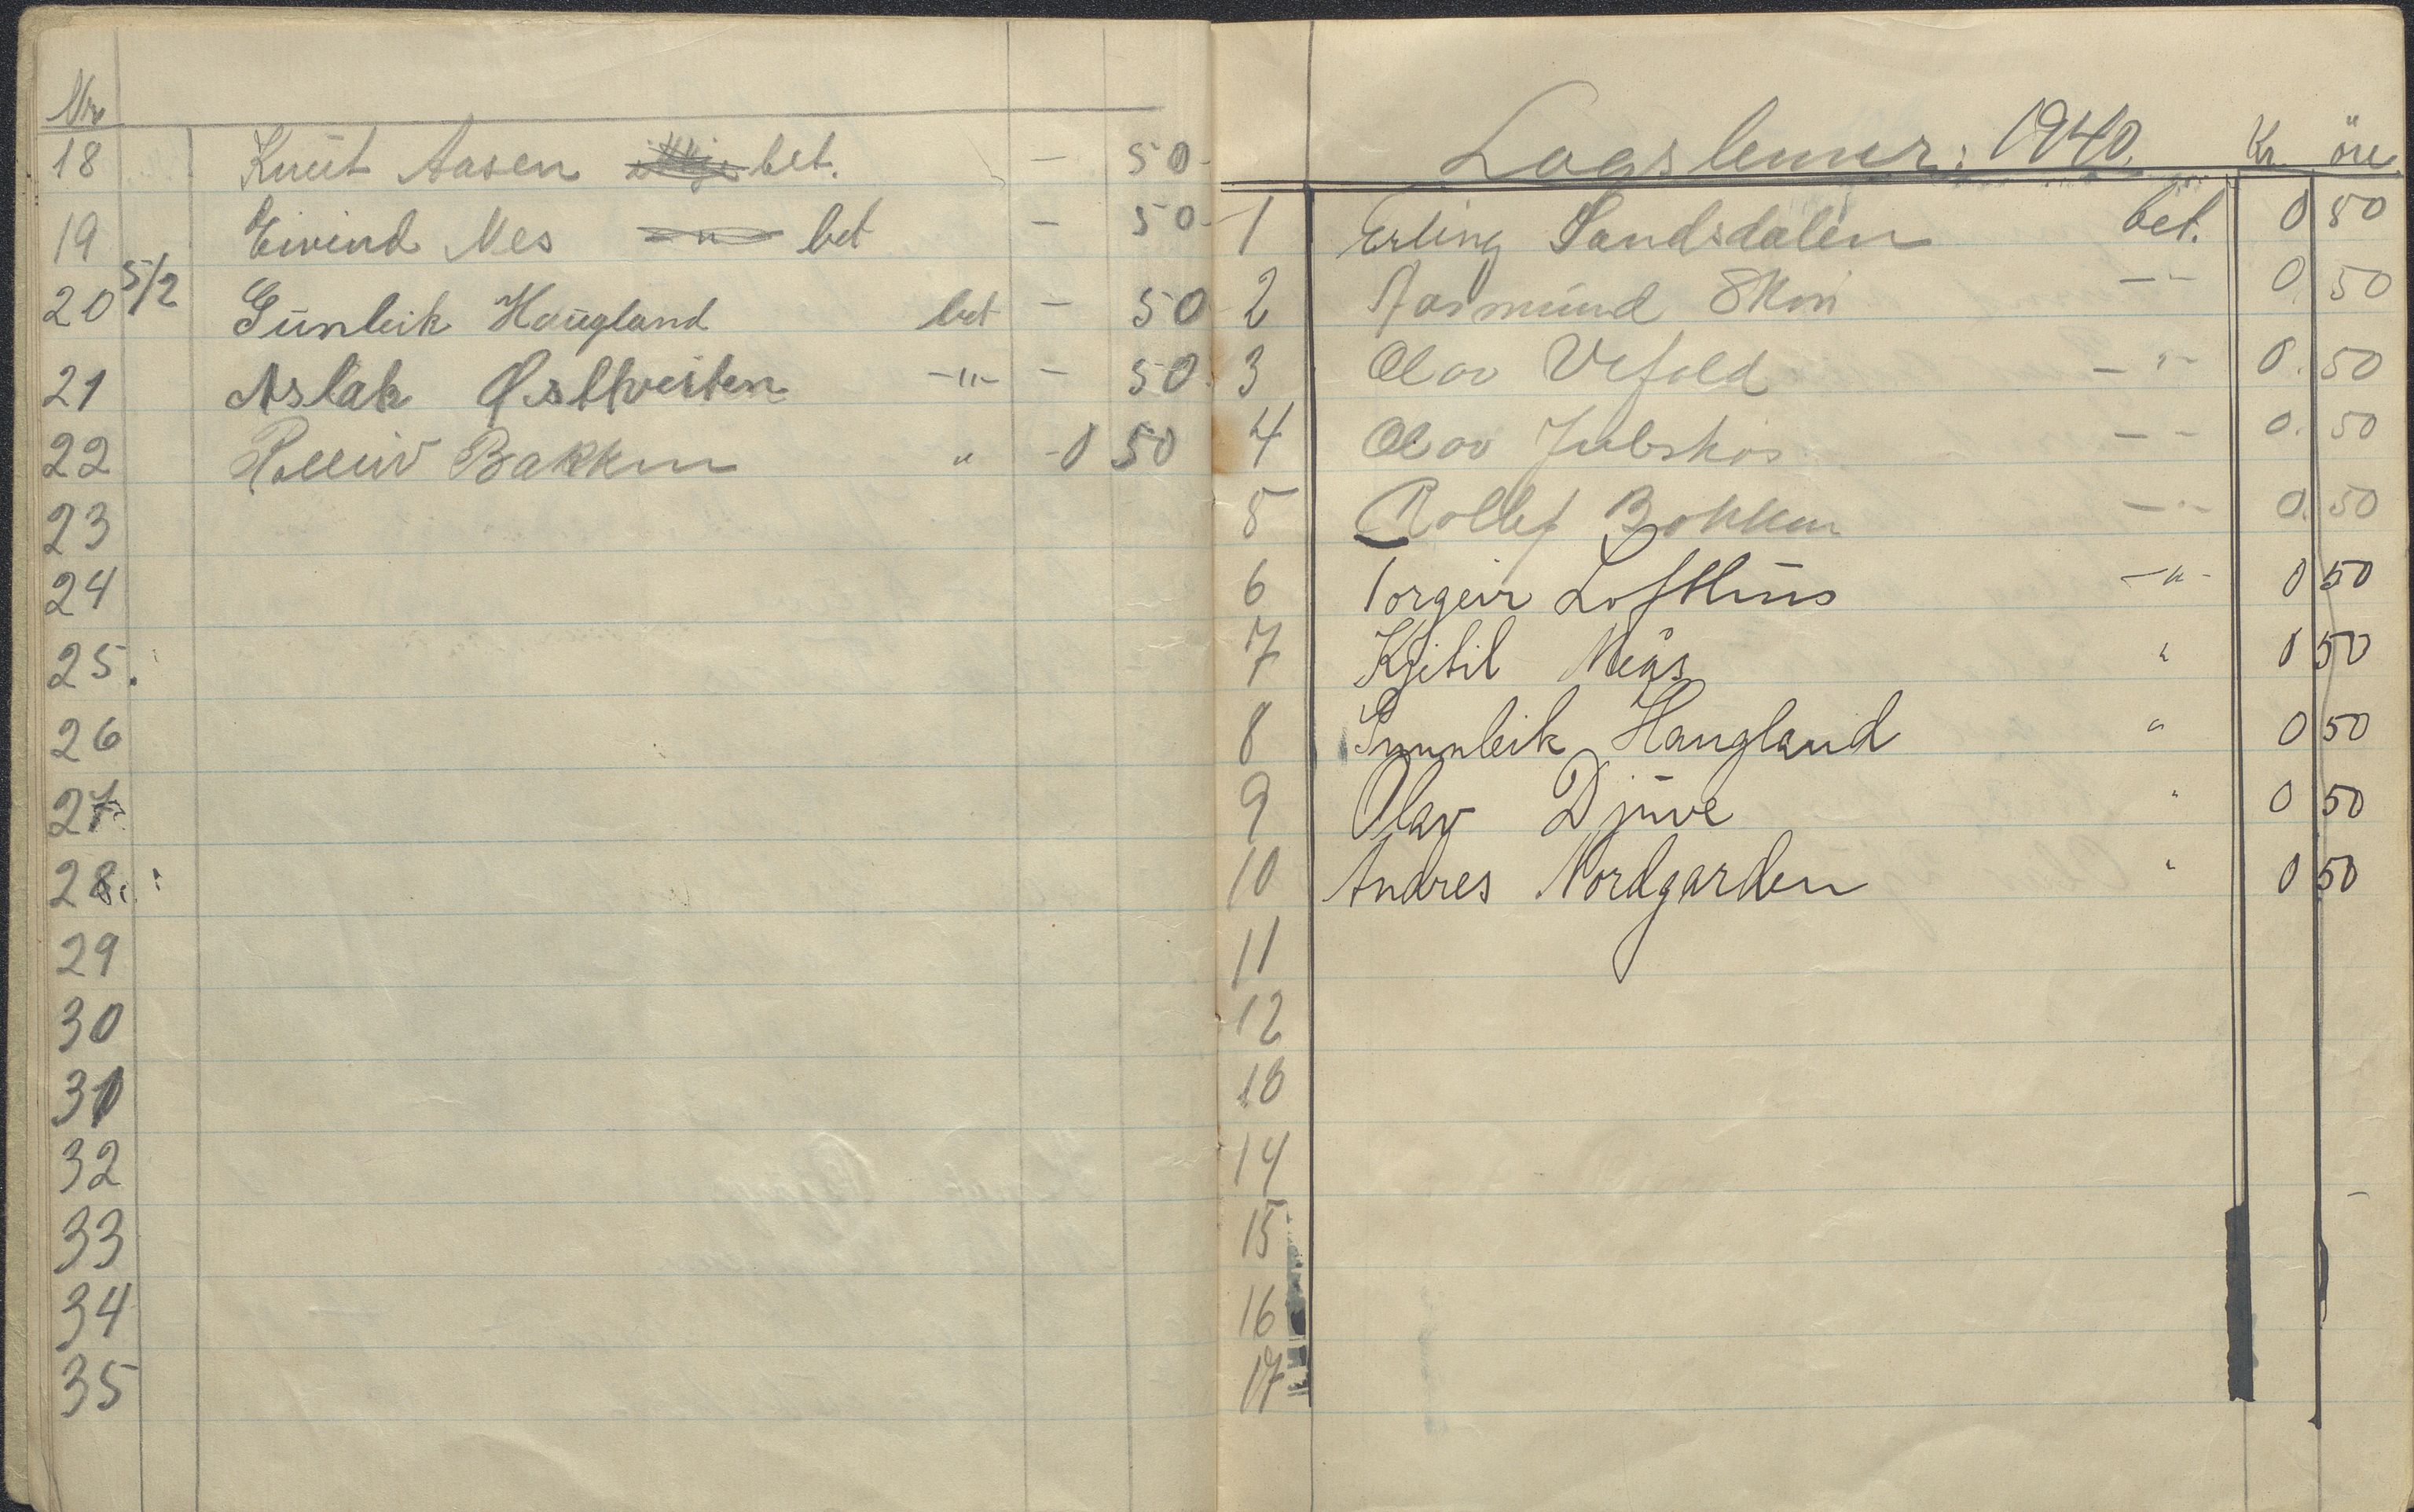 Nr
18 Knut Aasen ikkje bet. - 50
19 Eivind Nes -"- bet - 50
20 5/2 Gunleik Haugland bet - 50
21 Aslak Østtveiten -"- - 50
22 Rolleiv Bakken " 0 50
23
24
25.
26
27
28.
29
30
31
32
33
34
35
Lagslemer: 1940. Kr. öre
1 Erling Sandsdalen bet. 0 50
2 Aasmund Skori -"- 0. 50
3 Olav Vefald -"- 0. 50
4 Olav -"- 0. 50
5 Rollef Bakken -"- 0. 50
6 Torgeir Lofthus -"- 0 50
7 Kjetil Meås " 0 50
8 Gunnleik Haugland " 0 50
9 Olav Djuve " 0 50
10 Andres Nordgarden " 0 50
11
12
13
14
15
16
17